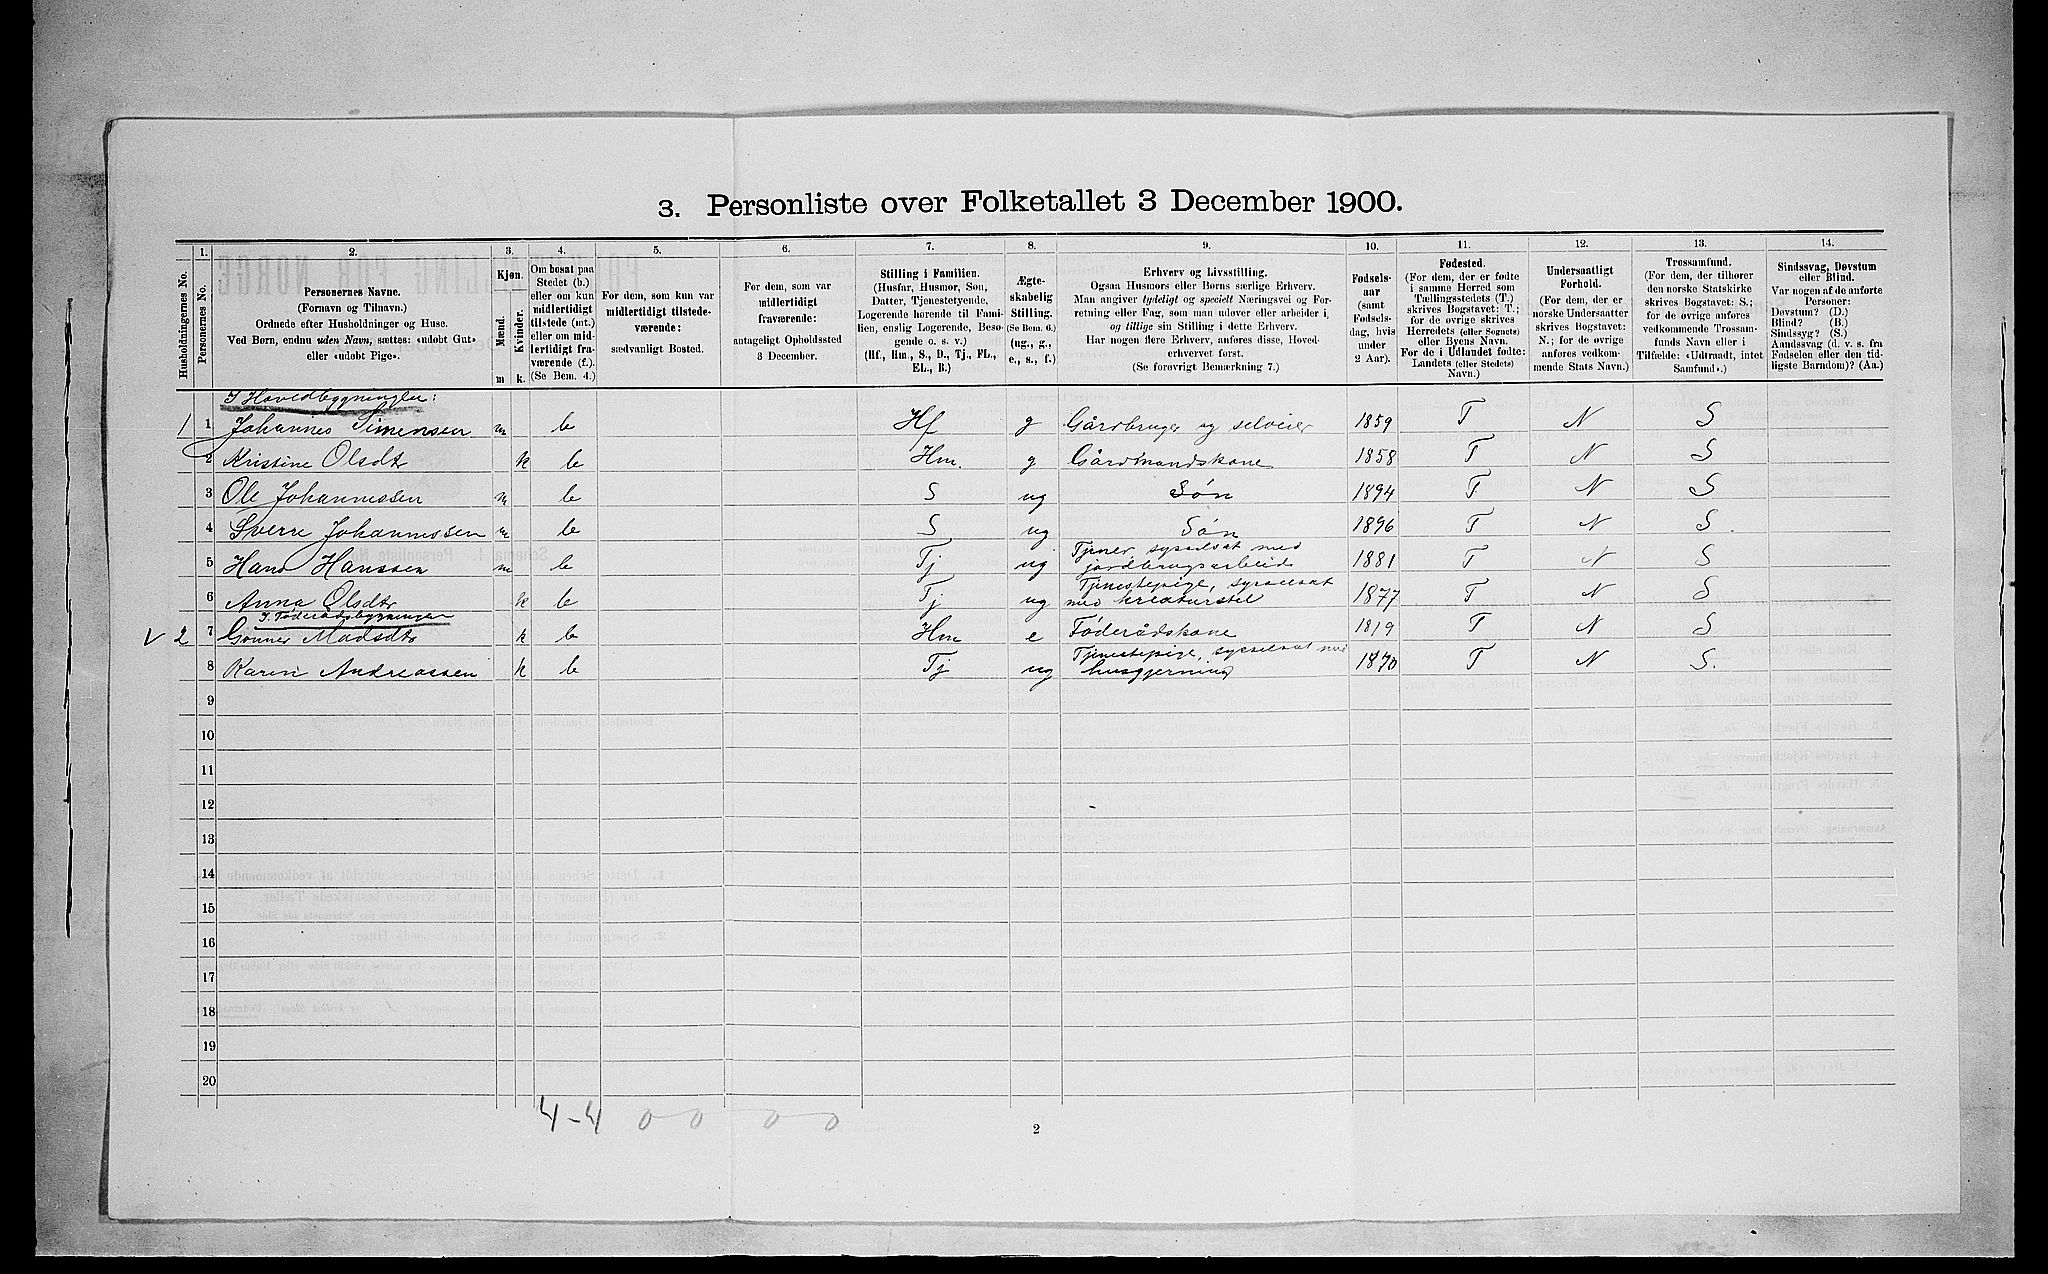 3. Personliste over Folketallet 3 December 1900.
Husholdningernes No.
1.
Personernes No.
2.
Personernes Navne.
(Fornavn og Tilnavn.)
Ordnede efter Husholdninger og Huse.
Ved Børn, endnu uden Navn, sættes: «udøbt Gut»
eller «udøbt Pige».
3.
Kjøn.
Mænd.
Kvinder.
m
k.
4.
Om bosat paa
Stedet (b.)
eller om kun
midlertidigt
tilstede (mt.)
eller om mid-
lertidigt fra-
værende (f.).
(Se Bem. 4.)
5.
For dem, som kun var
midlertidigt tilstede-
værende:
sædvanligt Bosted.
6.
For dem, som var
midlertidigt
fraværende:
antageligt Opholdssted
3 December.
7.
Stilling i Familien.
(Husfar, Husmor, Søn,
Datter, Tjenestetyende,
Logerende hørende til Fami-
lien, enslig Logerende, Besø-
gende o. s. v.)
(Hf., Hm., S., D., Tj., FL.,
EL., B.)
8.
Ægte-
skabelig
Stilling.
(Se Bem. 6.)
(ug., g.,
e., s., f.)
9.
Erhverv og Livsstilling.
Ogsaa Husmors eller Børns særlige Erhverv.
Man angiver tydeligt og specielt Næringsvei og For-
retning eller Fag, som man udøver eller arbeider i,
og tillige sin Stilling i dette Erhverv.
Har nogen flere Erhverv, anføres disse, Hoved-
erhvervet først.
(Se forøvrigt Bemærkning 7.)
10.
Fødsels-
aar
(samt
Fødsels-
dag, hvis
under
2 Aar).
11.
Fødested.
(For dem, der er fødte
i samme Herred som
Tællingsstedets (T.)
skrives Bogstavet: T.;
for de øvrige skrives
Herredets (eller Sognets)
eller Byens Navn.
For de i Udlandet fødte:
Landets (eller Stedets)
Navn.)
12.
Undersaatligt
Forhold.
(For dem, der er
norske Undersaatter
skrives Bogstavet:
N.; for de øvrige
anføres vedkom-
mende Stats Navn.)
13.
Trossamfund.
(For dem, der tilhører
den norske Statskirke
skrives Bogstavet: S.;
for de øvrige anføres
vedkommende Trossam-
funds Navn eller i
Tilfælde: «Udtraadt, intet
Samfund».)
14.
Sindssvag, Døvstum
eller Blind.
Var nogen af de anførte
Personer:
Døvstum? (D.)
Blind? (B.)
Sindssyg? (S.)
Aandssvag (d. v. s. fra
Fødselen eller den tid-
ligste Barndom)? (Aa.)
I Hovedbygningen:
1 1 Johannes Simensen m b Hf g Gårdbruger og selveier 1859 T N S
2 Kristine Olsdtr k b Hm. g Gårdmandskone 1858 T N S
3 Ole Johannessen m b S ug Søn 1894 T N S
4 Sverre Johannessen m b S ug Søn 1896 T N S.
5 Hans Hanssen m b Tj ug Tjener, sysselsat med
jordbrugsarbeide 1881 T N S
6 Anna Olsdtr k b Tj ug Tjenestepige, sysselsat
med kreaturstel 1877 T N S
I Føderådsbygningen
V 2 7 Gonner Madsdtr k b Hm e Føderådskone 1819 T N S
8 Karen Andreassen k b Tj ug Tjenestepige, sysselsat med
husgjerning 1870 T N S.
9
10
11
12
13
14
15
16
17
18
19
20
4-4 0 0 0 0
2